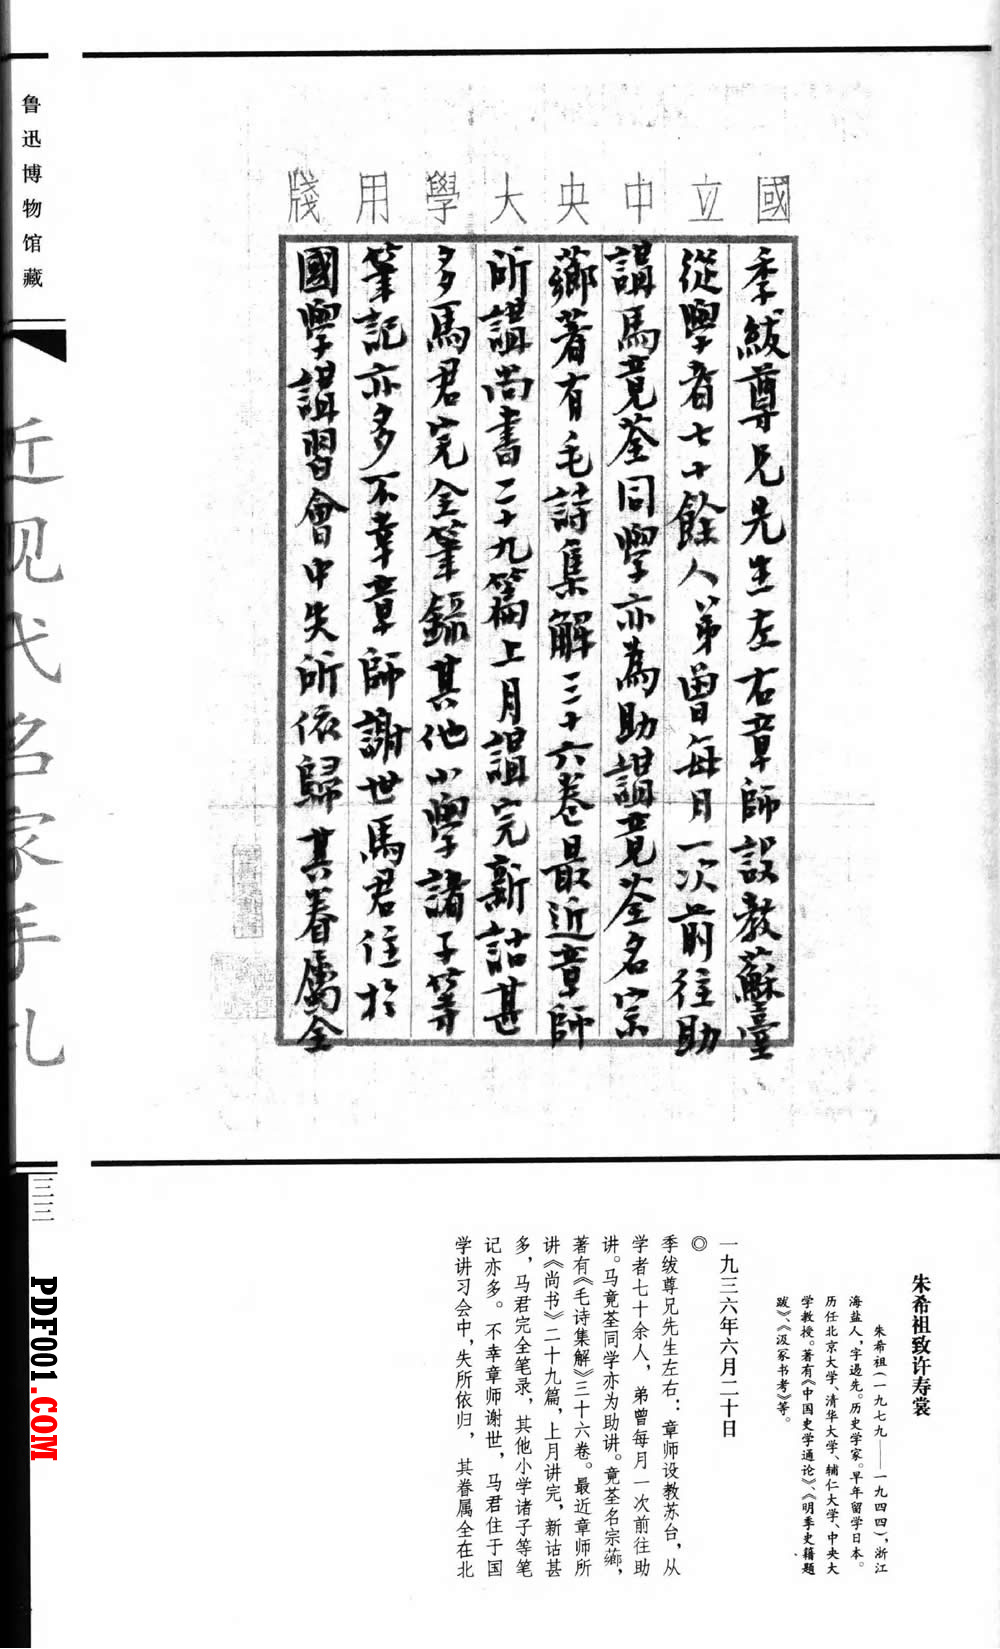 鲁迅博物馆藏
近现代名家手札
三三
國立中央大學用牋
季紱尊兄先生左右章師設教蘇臺
從學者七十餘人弟曾每月一次前往助
講馬竟荃同學亦為助講竟荃名宗
薌著有毛詩集解三十六卷最近章師
所講尚書二十九篇上月講完新詁甚
多馬君完全筆錄其他小學諸子等
筆記亦多不幸章師謝世馬君住於
國學講習會中失所依歸其眷属全
朱希祖致许寿裳
朱希祖(一九七九——一九四四),浙江
海盐人,字逷先。历史学家。早年留学日本。
历任北京大学、清华大学、辅仁大学、中央大
学教授。著有《中国史学通论》、《明季史籍题
跋》、《汲冢书考》等。
一九三六年六月二十日
◎
季绂尊兄先生左右:章师设教苏台,从
学者七十余人,弟曾每月一次前往助
讲。马竟荃同学亦为助讲。竟荃名宗薌,
著有《毛诗集解》三十六卷。最近章师所
讲《尚书》二十九篇,上月讲完,新诂甚
多,马君完全笔录,其他小学诸子等笔
记亦多。不幸章师谢世,马君住于国
学讲习会中,失所依归,其眷属全在北
PDF001.COM